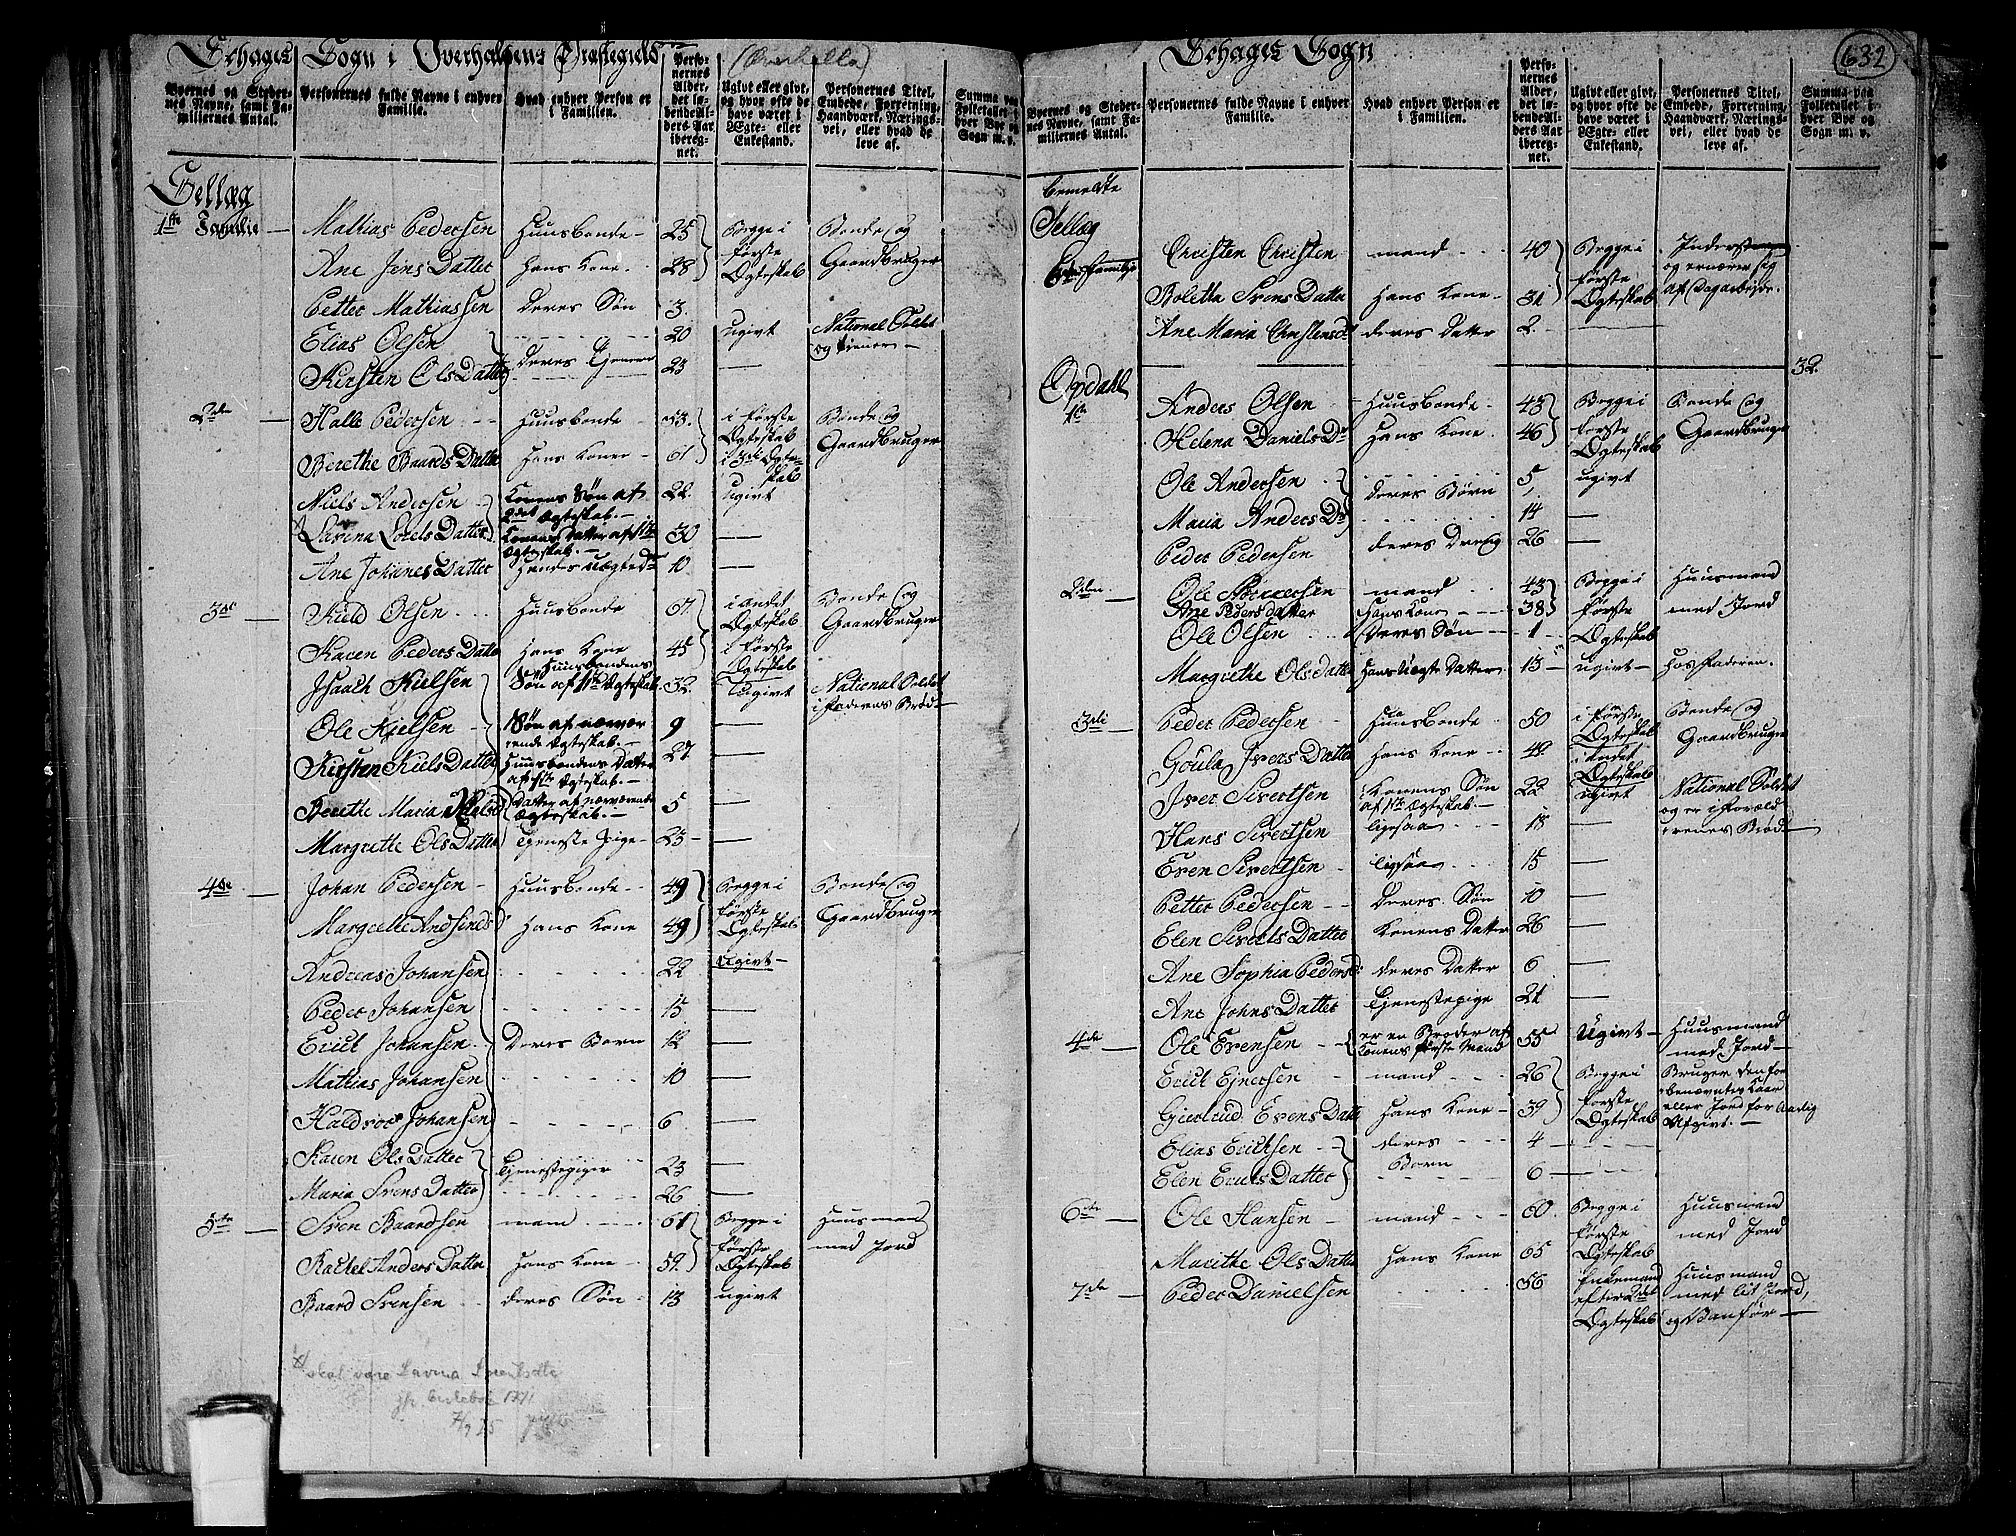 Schages Sogn i Overhalsens Præstegield
(Overhalla)
Byernes og Stedernes Navne, samt Familiernes Antal.
Personernes fulde Navne i enhver Familie.
Hvad enhver Person er i Familien.
Personernes Alder, det løbende Alders Aar iberegnet.
Ugivt eller givt, og hvor ofte de have været i Ægte- eller Enkestand.
Personernes Titel, Embede, Forretning, Haandværk, Næringsvei, eller hvad de leve af.
Summa paa Folketallet i hver Bye og Sogn m. v.
Sellæg
1ste Familie — Mathias Pedersen Huusbonde 25 Begge i Bonde og
Ane Jens Datter hans Kone 28 første Ægteskab Gaardbruger
Petter Mathiassen deres Søn 3
Elias Olsen 20 ugivt National Soldat og tiener
Kirsten Ols Datter deres Tjenere 23 —
2den — Halle Pedersen Huusbonde 53 i første Ægteskab Bonde og
Berethe Baards Datter hans Kone 61 i 3die Ægteskab Gaardbruger
Niels Andersen Konens Søn af 2det Ægteskab 22 ugivt
Lavina Lorels Datter Konens Datter af 1ste Ægteskab 30 —
Ane Johanes Datter hendes uægte Dr 10 —
3die — Kield Olsen Huusbonde 67 i andet Ægteskab Bonde og
Karen Peders Datter hans Kone 45 i første Ægteskab Gaardbruger
Isaach Kielsen Huusbondens Søn af 1ste Ægteskab 32 ugivt National Soldat i Faderens Brød
Ole Kielsen Søn af nærværende Ægteskab 9 —
Kirsten Kiels Datter Huusbondens Datter af 1ste Ægteskab 27 —
Berethe Maria Kielsd Datter af nærværende Ægteskab 5 —
Margrethe Ols Datter Tjeneste Pige 23 —
4de — Johan Pedersen Huusbonde 49 Begge i Bonde og
Margrethe Andsinds hans Kone 49 første Ægteskab Gaardbruger
Andreas Johansen 22 ugivt
Peder Johansen 15 —
Erich Johansen Deres Børn 12 —
Mathias Johansen 10 —
Haldvor Johansen 6 —
Karen Ols Datter Tjenestepiger 23 —
Maria Svens Datter 26 —
5te — Sven Baardsen mand 61 Begge i Huusmand
Rachel Anders Datter hans Kone 59 første Ægteskab med Jord
Baard Svensen deres Søn 13 ugivt
skal være Lavina
jfr. 1771
7/9 25
Schages Sogn
632
Byernes og Stedernes Navne, samt Familiernes Antal.
Personernes fulde Navne i enhver Familie.
Hvad enhver Person er i Familien.
Personernes Alder, det løbende Alders Aar iberegnet.
Ugivt eller givt, og hvor ofte de have været i Ægte- eller Enkestand.
Personernes Titel, Embede, Forretning, Haandværk, Næringsvei, eller hvad de leve af.
Summa paa Folketallet i hver Bye og Sogn m. v.
bemeldte
Sellæg
6te Familie Christen Christen mand 40 Begge i Inderst og ernærer sig
Boletha Svens Datter hans Kone 31 første Ægteskab af Dagarbejde
Ane Maria Christensdr deres Datter 2 —
32
Opdahl
1ste Anders Olsen Huusbonde 43 Begge i Bonde og
Helena Daniels Dr hans Kone 46 første Ægteskab Gaardbruger
Ole Andersen deres Børn 5 ugivt
Maria Anders Dr 14 —
Peder Pedersen deres Dreng 26 —
2den — Ole mand 43 Begge i Huusmand
Ane Peders datter hans Kone 38 første med Jord
Ole Olsen deres Søn 1 Ægteskab
Margrethe Ols Datter hans uægte Datter 15 ugivt hos Faderen
3die — Peder Pedersen Huusbonde 50 i første Ægteskab Bonde og
Goula Ivers Datter hans Kone 49 i andet Ægteskab Gaardbruger
Iver Sivertsen Konens Søn af 1ste Ægteskab 22 ugivt National Soldat og er i Forældrenes Brød
Hans Sivertsen ligesaa 18 —
Even Sivertsen ligesaa 15 —
Petter Pedersen deres Søn 10 —
Elen Siverts Datter Konens Datter 26 —
Ane Sophia Pedersd deres Datter 6 —
Ane Johns Datter Tjenestepige 21 —
4de — Ole Evensen er en Broder af Konens første Mand 55 Ugivt Huusmand med Jord
Erich Ejnersen mand 26 Begge i Bruger den forbenævnte
Giertrud Evens Datter hans Kone 39 første Ægteskab eller Jord for Aarlig Afgivt
Elias Erichsen deres 4 —
Elen Erichs Datter Børn 6 —
6te — Ole Hansen mand 60 Begge i Huusmand
Marithe Ols Datter hans Kone 65 første Ægteskab med Jord
7de — Peder Danielsen 56 Enkemand efter 2det Ægteskab Huusmand med lit Jord, og Vanfør